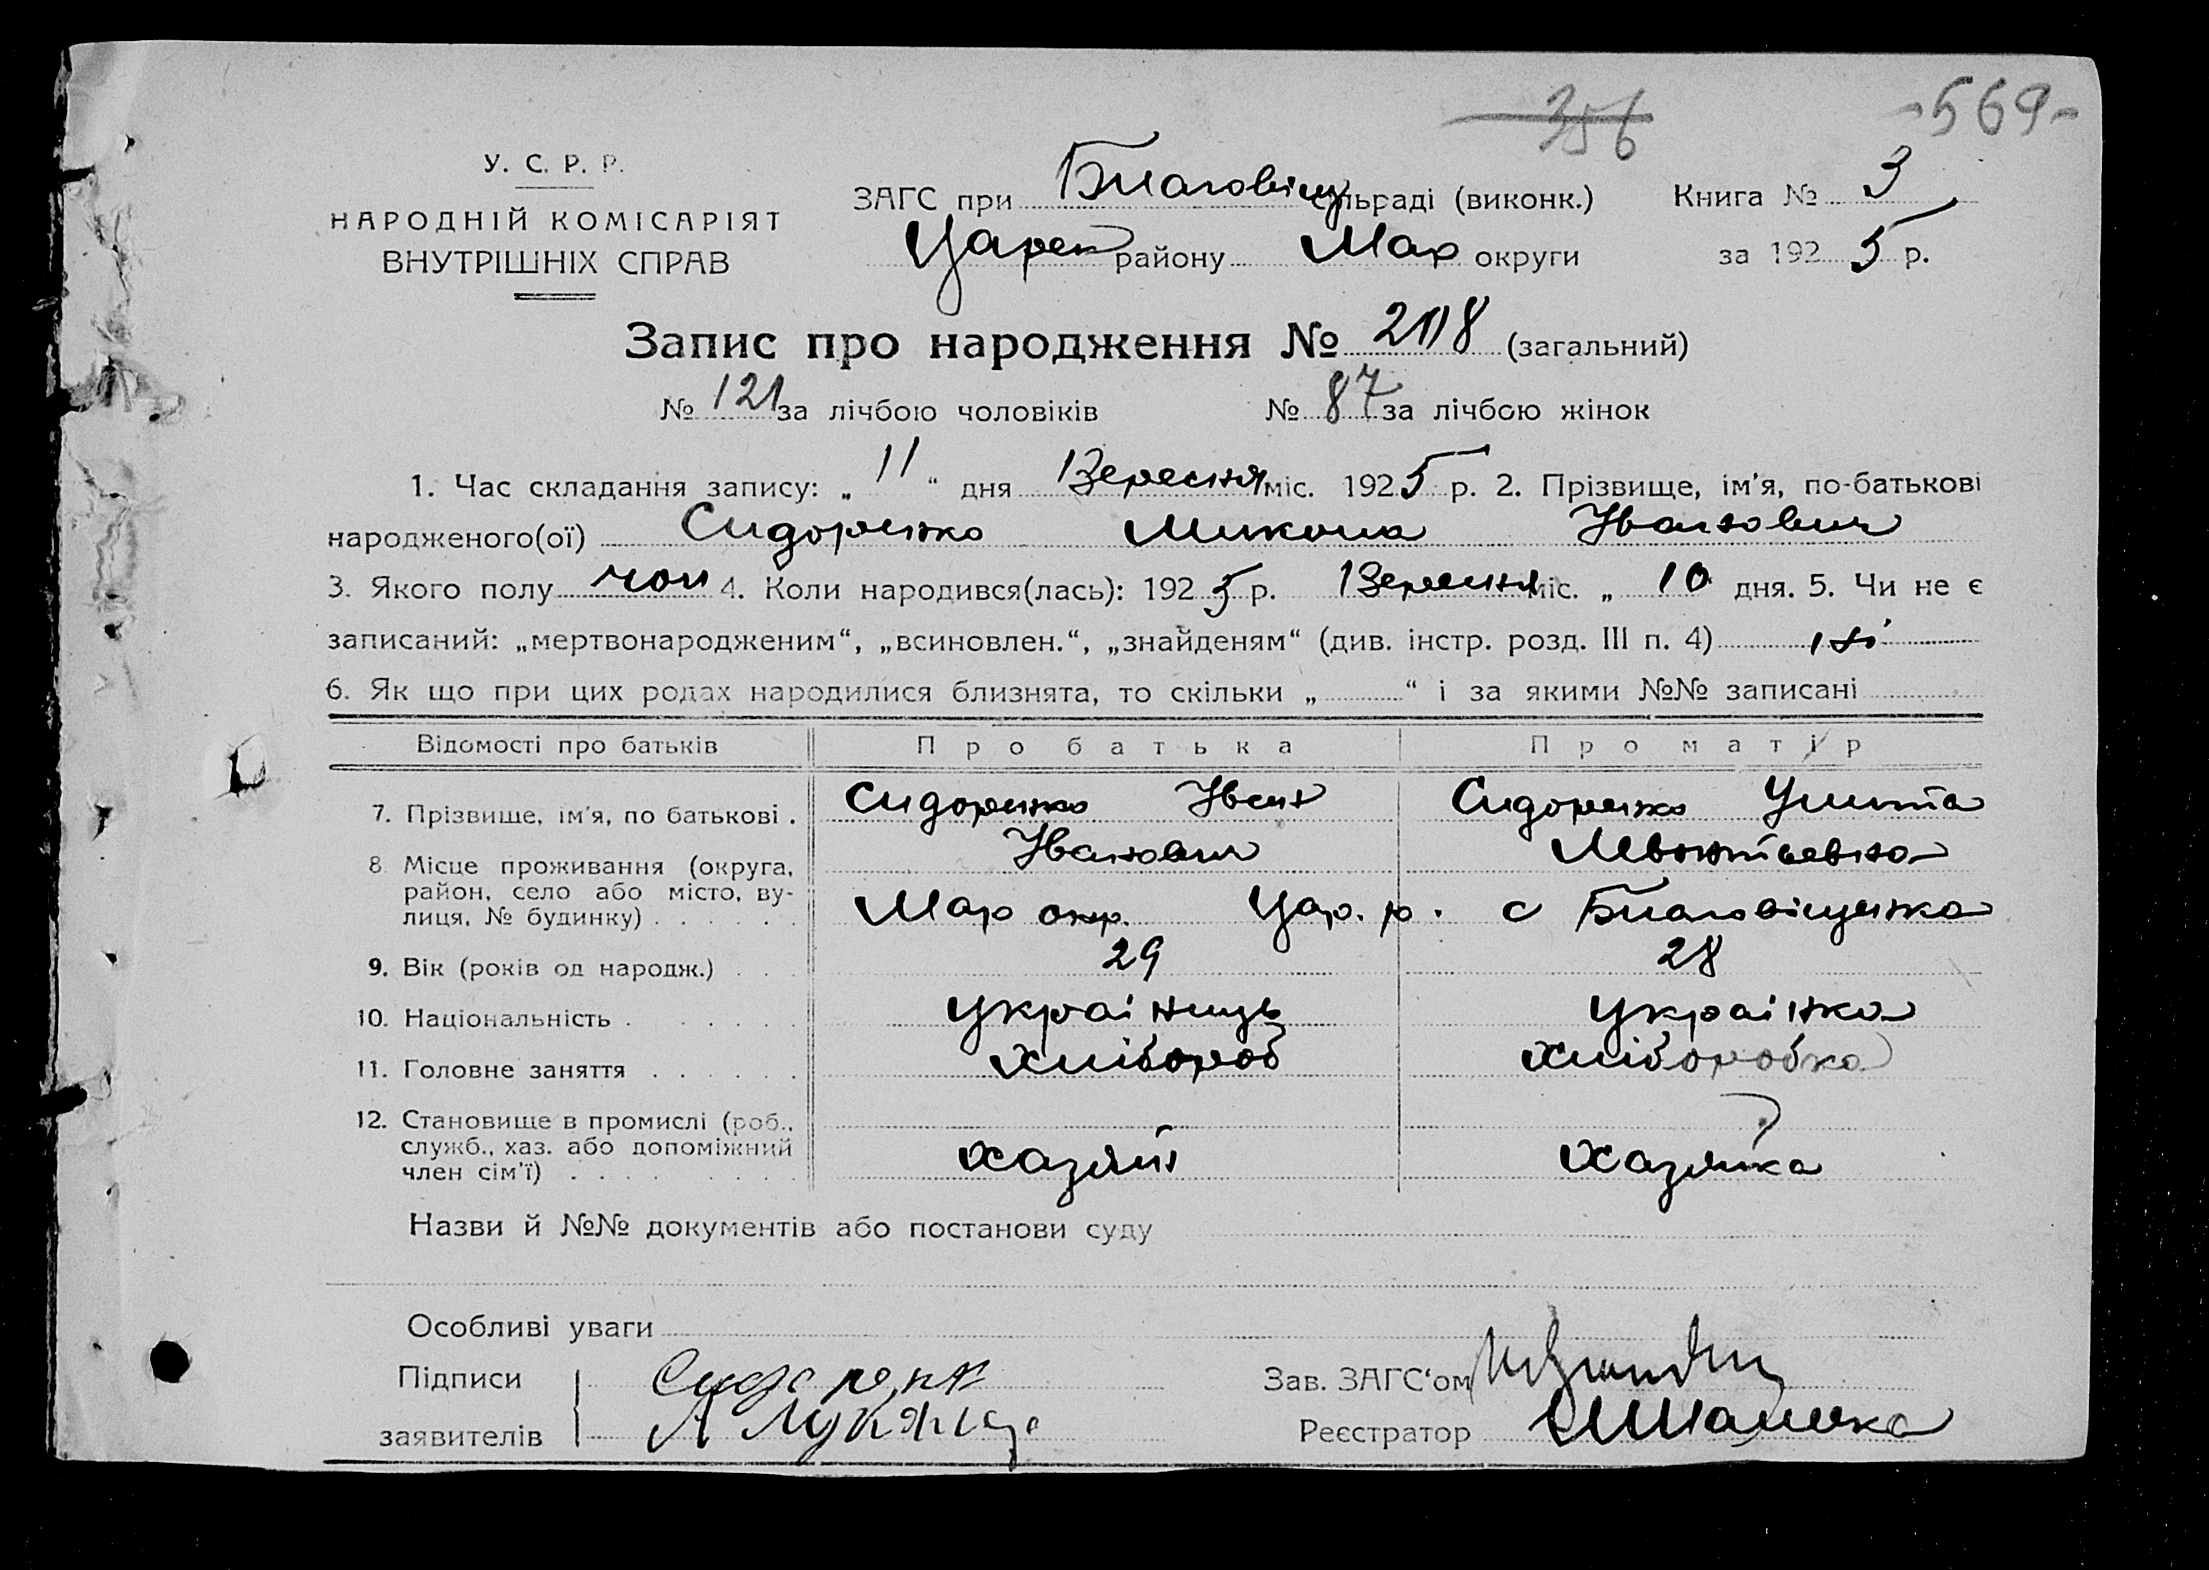 356 -569-
У. С. Р. Р.
НАРОДНІЙ КОМІСАРІЯТ
ВНУТРІШНІХ СПРАВ
ЗАГС при Благовіщ сільраді (виконк.) Книга № 3
Царек району Мар округи за 1925 р.
Запис про народження № 208 (загальний)
№ 121 за лічбою чоловіків № 87 за лічбою жінок
1. Час складання запису: „11“ дня Вересня міс. 1925 р. 2. Прізвище, ім'я, по-батькові
народженого(ої) Сидоренко Микола Іванович
3. Якого полу чол 4. Коли народився(лась): 1925 р. Вересня міс. „ 10 дня. 5. Чи не є
записаний: „мертвонародженим“, „всиновлен.“, „знайденям“ (див. інстр. розд. III п. 4) ні
6. Як що при цих родах народилися близнята, то скільки „ “ і за якими №№ записані
Відомості про батьків Про батька Про матір
7. Прізвище, ім'я, по батькові . Сидоренко Іван Сидоренко Улита
Іванович
8 Місце проживання (округа, район, село або місто, вулиця, № будинку) Мар окр. Цар. р. с Благовіщенка
9. Вік (років од народж.) 29 28
10. Національність українець українка
11. Головне заняття хлібороб хліборобка
12. Становище в промислі (роб., служб., хаз. або допоміжний член сім'ї) хазяїн хазяйка
Назви й №№ документів або постанови суду
Особливі уваги
Підписи Сидоренк Зав. ЗАГС'ом
заявителів А Реєстратор